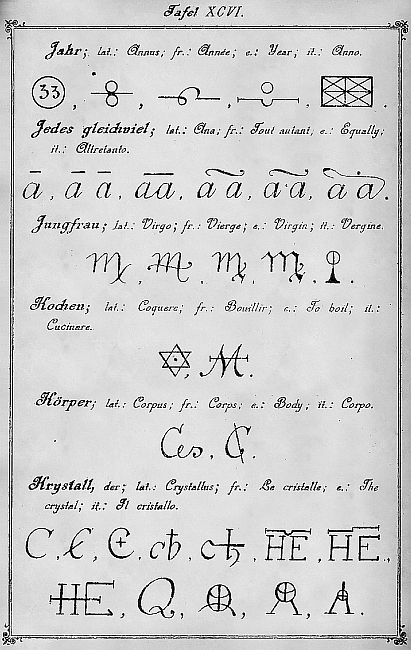 Tafel XCVI.
Jahr; lat.: Annus; fr.: Année; e.: Year; it.: Anno.
33
Jedes gleichviel; lat.: Ana; fr.: Tout autant; e.: Equally;
it.: Altretanto.
ā, ā ā, āā, a͞a, a͞a, a͞a.
Jungfrau; lat.: Virgo; fr.: Vierge; e.: Virgin; it.: Vergine.
Kochen; lat.: Coquere; fr.: Bouillir; e.: To boil; it.:
Cucinare.
Körper; lat.: Corpus; fr.: Corps; e.: Body; it.: Corpo.
Ces,
Krystall, der; lat.: Crystallus; fr.: Le cristalle; e.: The
crystal; it.: Il cristallo.
C, HE, HE,
HE, Q,